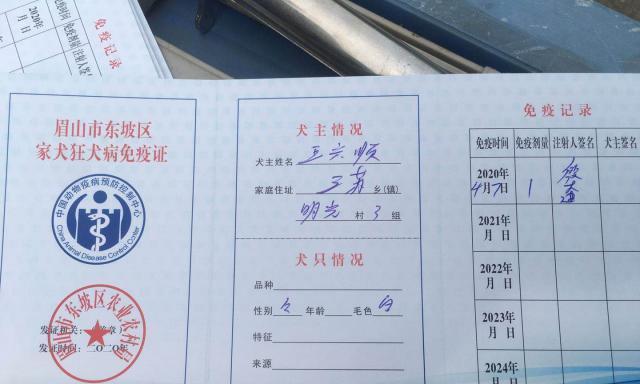 免疫记录
免疫时间 免疫剂量 注射人签名
2020年
月 日
眉山市东坡区
家犬狂犬病免疫证
中国动物疫病预防控制中心
China Animal Disease Control Center
眉山市东坡区农业农村局
发证机关：（盖章）
发证时间：二〇二〇年
犬主情况
犬主姓名 王六顺
家庭住址 三苏 乡(镇)
明光 村 3 组
犬只情况
品种
性别 公 年龄 毛色 白
特征
来源
免疫记录
免疫时间 免疫剂量 注射人签名 犬主签名
2020年
4月7日 1
2021年
月 日
2022年
月 日
2023年
月 日
2024年